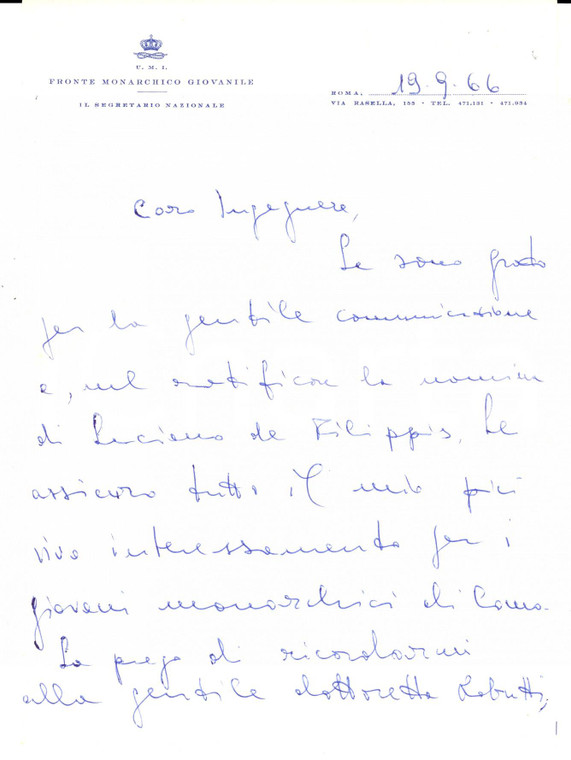 U. M. I.
FRONTE MONARCHICO GIOVANILE
IL SEGRETARIO NAZIONALE
ROMA, 19.9.66
VIA RASELLA, 155 • TEL. 471.131 - 471.034
Caro Ingegnere,
Le sono grato
per la gentile comunicazione
e, nel ratificare la nomina
di Luciano de Filippis, Le
assicuro tutto il mio più
vivo interessamento per i
giovani monarchici di Como.
La prego di ricordarmi
alla gentile dottoressa